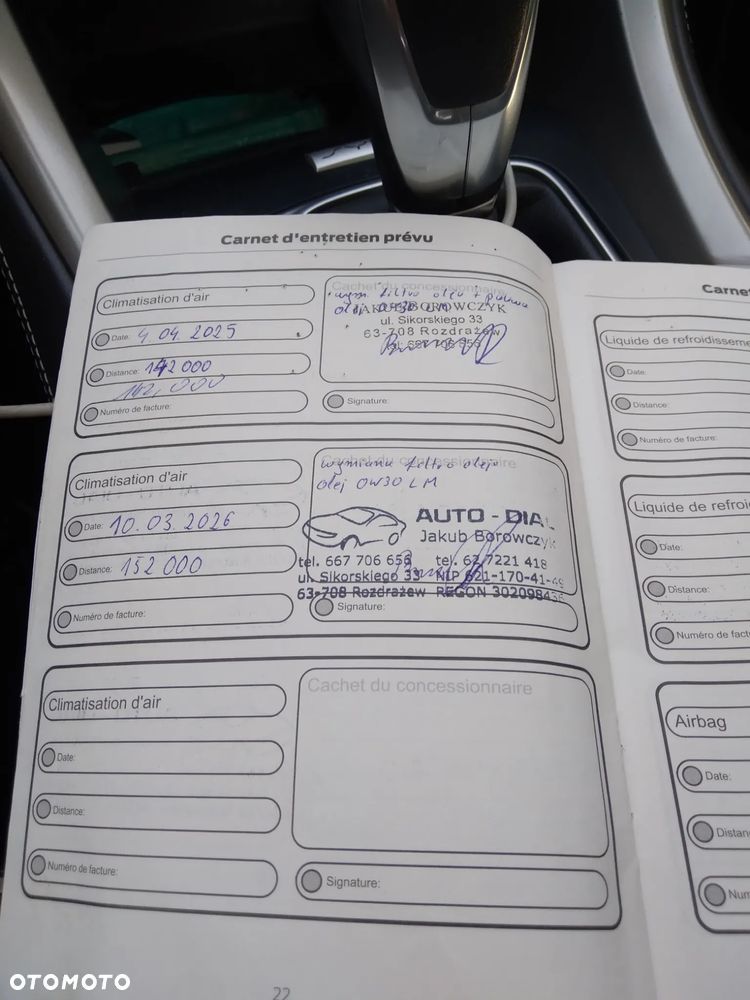 Carnet d'entretien prévu
Climatisation d'air
Date: 4.04.2025
Distance: 142 000
142,000
Numéro de facture:
Cachet du concessionnaire
wym. filtra oleju +
olej 0W30 LM
JAKUB BOROWCZYK
ul. Sikorskiego 33
63-708 Rozdrażew
Signature:
Climatisation d'air
Date: 10.03.2026
Distance: 152 000
Numéro de facture:
Cachet du concessionnaire
wymiana filtra oleju
olej 0W30 LM
AUTO - DIAL
Jakub Borowczyk
tel. 667 706 tel. 62 7221 418
ul. Sikorskiego 33 NIP 621-170-41-
63-708 Rozdrażew REGON
Signature:
Climatisation d'air
Date:
Distance:
Numéro de facture:
Cachet du concessionnaire
Signature:
22
Carne
Liquide de refroidisseme
Date:
Distance:
Numéro de facture:
Liquide de refroi
Date:
Distance:
Numéro de factu
Airbag
Date:
Distan
Num
OTOMOTO